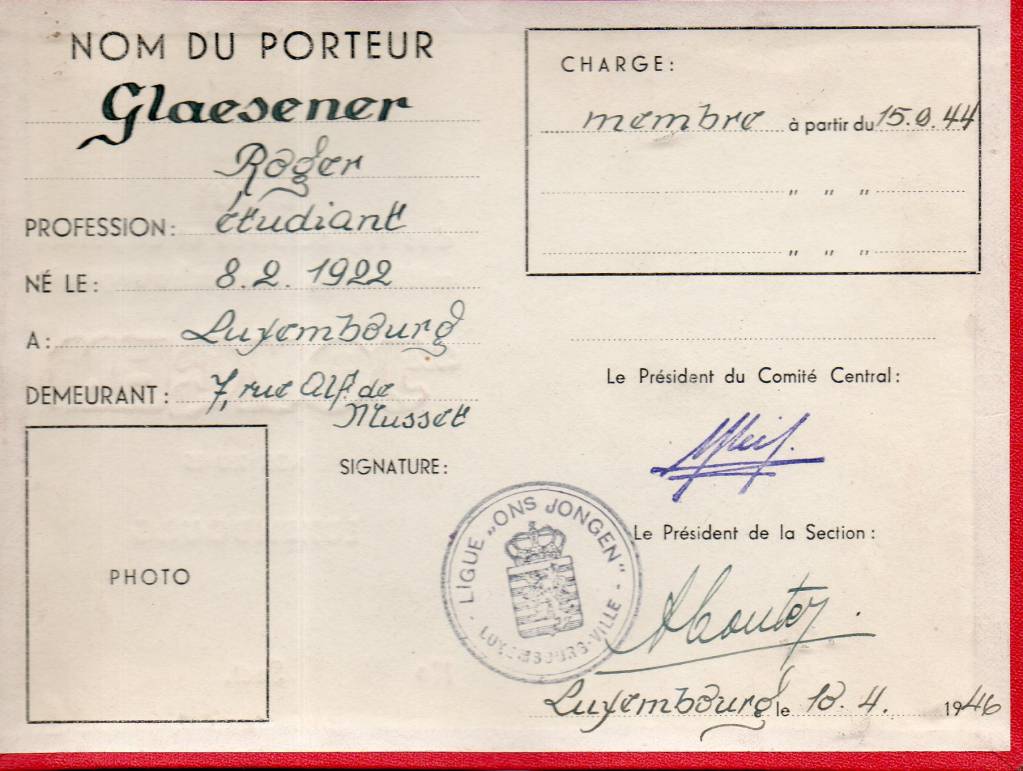 NOM DU PORTEUR
Glaesener
Roger
PROFESSION: étudiant
NÉ LE: 8.2.1922
A: Luxembourg
DEMEURANT: 7, rue Alf. de
Musset
PHOTO
SIGNATURE:
CHARGE:
membre à partir du 15.9.44
" " "
" " "
Le Président du Comité Central:
LIGUE „ONS JONGEN"
LUXEMBOURG-VILLE
Le Président de la Section:
Luxembourg le 18.4. 1946